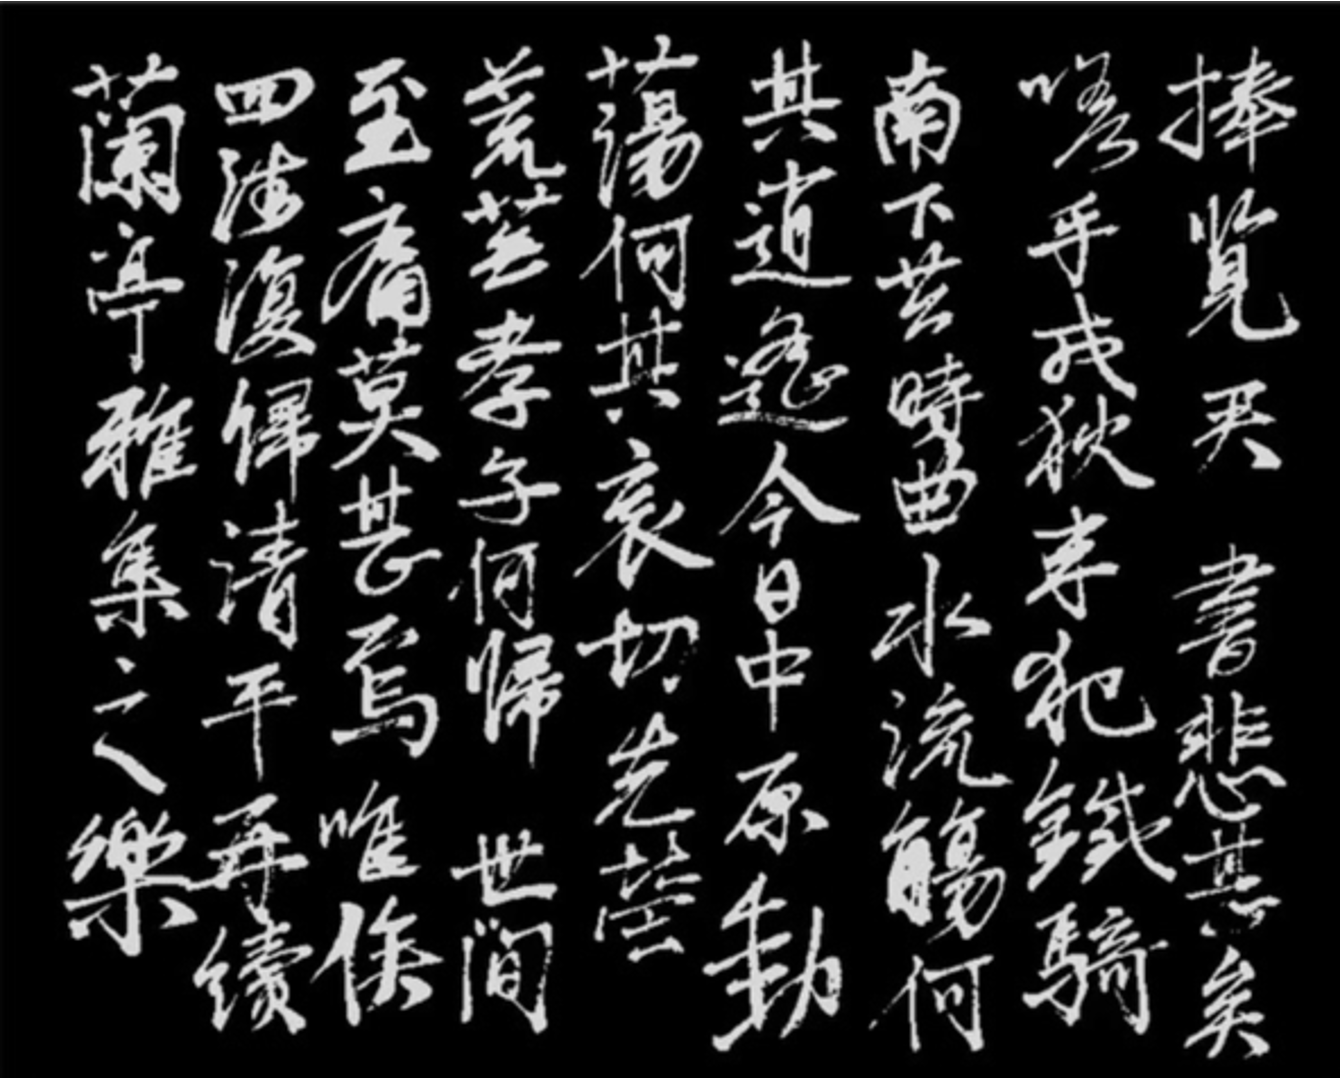 捧覽尺書悲甚矣
嗟乎戎狄来犯鐵騎
南下昔時曲水流觴何
其逍遙今日中原動
蕩何其哀切先塋
荒蕪孝子何歸世間
至痛莫甚焉唯俟
四海復歸清平再續
蘭亭雅集之樂